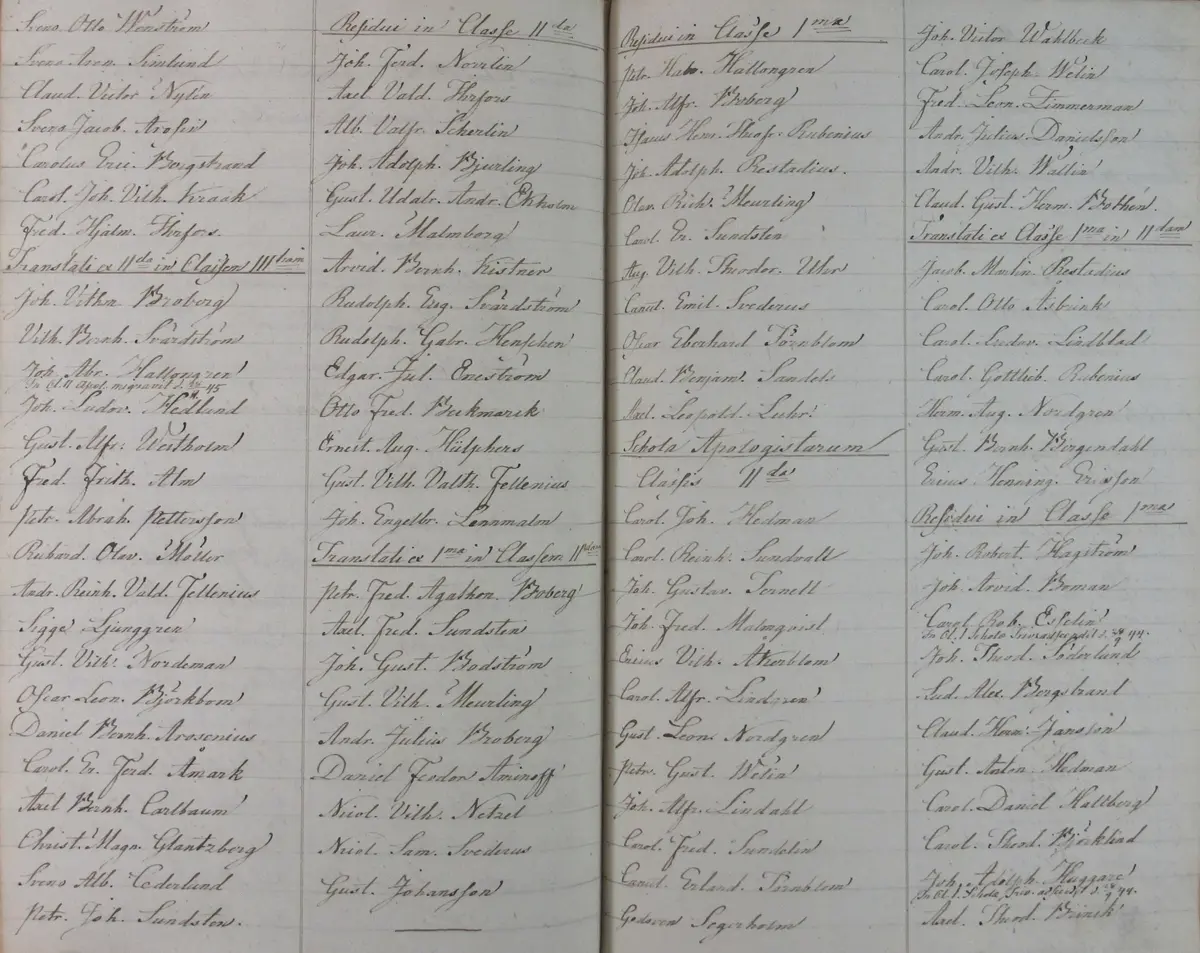 Sveno Otto Wenström
Sveno Aron. Similund
Claud. Victor Nylin
Sveno Jacob. Arosin
Carolus Eric. Bergstrand
Carol. Joh. Vilh. Kraak
Fred. Hjalm. Thrfors.
Translati ex II da in Classem III tiam
Joh. Vilhm Broberg
Vilh. Bernh. Svärdström
Joh. Abr. Hallongren
In Cl. II Apol. migravit d.
Joh. Ludov. Hedlund
Gust. Alfr. Westholm
Fred. Frith. Alm
Petr. Abrah. Pettersson
Richard Olav. Möller
Andr. Reinh. Vald. Fellenius
Sigge Ljunggren
Gust. Vilh. Nordeman
Oscar Leon. Björkbom
Daniel Bernh. Arosenius
Carol. Er. Ferd. Åmark
Axel Bernh. Carlbaum
Christ. Magn. Glantzberg
Sveno Alb. Cederlund
Petr. Joh. Sundsten.
Residui in Classe II da
Joh. Ferd. Norrlin
Axel Vald. Thrfors
Alb. Valfr. Scherlin
Joh. Adolph. Bjurling
Gust. Udalr. Andr. Ekholm
Laur. Malmborg
Arvid. Bernh. Kistner
Rudolph. Eug. Svärdström
Rudolph. Gabr. Henschen
Edgar. Jul. Eneström
Otto Fred. Beckmarck
Ernest. Aug. Hülphers
Gust. Vilh. Valth. Fellenius
Joh. Engelbr. Lannmalm
Translati ex 1 ma in Classem II dam
Petr. Fred. Agathon. Boberg
Axel. Fred. Sundsten
Joh. Gust. Bodström
Gust. Vilh. Meurling
Andr. Julius Broberg
Daniel Feodor Aminoff
Nicol. Vilh. Netzel
Nicol. Sam. Svederus
Gust. Johansson
Residui in Classe 1 ma
Petr. Hallongren
Joh. Alfr. Broberg
Henr. Rubenius
Joh. Adolph. Restadius.
Olav. Rich. Meurling
Carol. Er. Sundsten
Aug. Vilh. Theodor. Uhr
Canut. Emil. Svederus
Oscar Eberhard Törnblom
Claud. Benjam. Sandels
Axel. Leopold. Luhr
Schola Apologistarum
Classis II da
Carol. Joh. Hedman
Carol. Reinh. Sundvall
Joh. Gustav. Ternell
Joh. Fred. Malmqvist
Ericus Vilh. Åkerblom
Carol. Alfr. Lindgren
Gust. Leon. Nordgren
Petr. Gust. Welin
Joh. Alfr. Lindahl
Carol. Fred. Sundelin
Canut. Erland. Törnblom
Godoven Segerholm
Joh. Victor Wahlbeck
Carol. Joseph. Welin
Fred. Leon. Zimmerman
Andr. Julius Danielsson
Andr. Vilh. Wallin
Claud. Gust. Herm. Bothén.
Translati ex Classe 1 ma in II dam
Jacob. Martin. Restadius
Carol. Otto Åsbrink
Carol. Ludov. Lindblad
Carol. Gottlieb. Rubenius
Herm. Aug. Nordgren
Gust. Bernh. Bergendahl
Ericus Henning. Ericsson
Residui in Classe 1 ma
Joh. Robert. Hagström
Joh. Arvid. Boman
Carol. Rob. Esselin
In Cl. 1 Schol. d.
Joh. Theod. Söderlund
Lud. Alex. Bergstrand
Claud. Herm. Jansson
Gust. Anton. Hedman
Carol. Daniel Hallberg
Carol. Theod. Björkblad
Joh. Adolph. Huggare
In Cl. 1. Schol. d.
Axel. Theod. Brinck